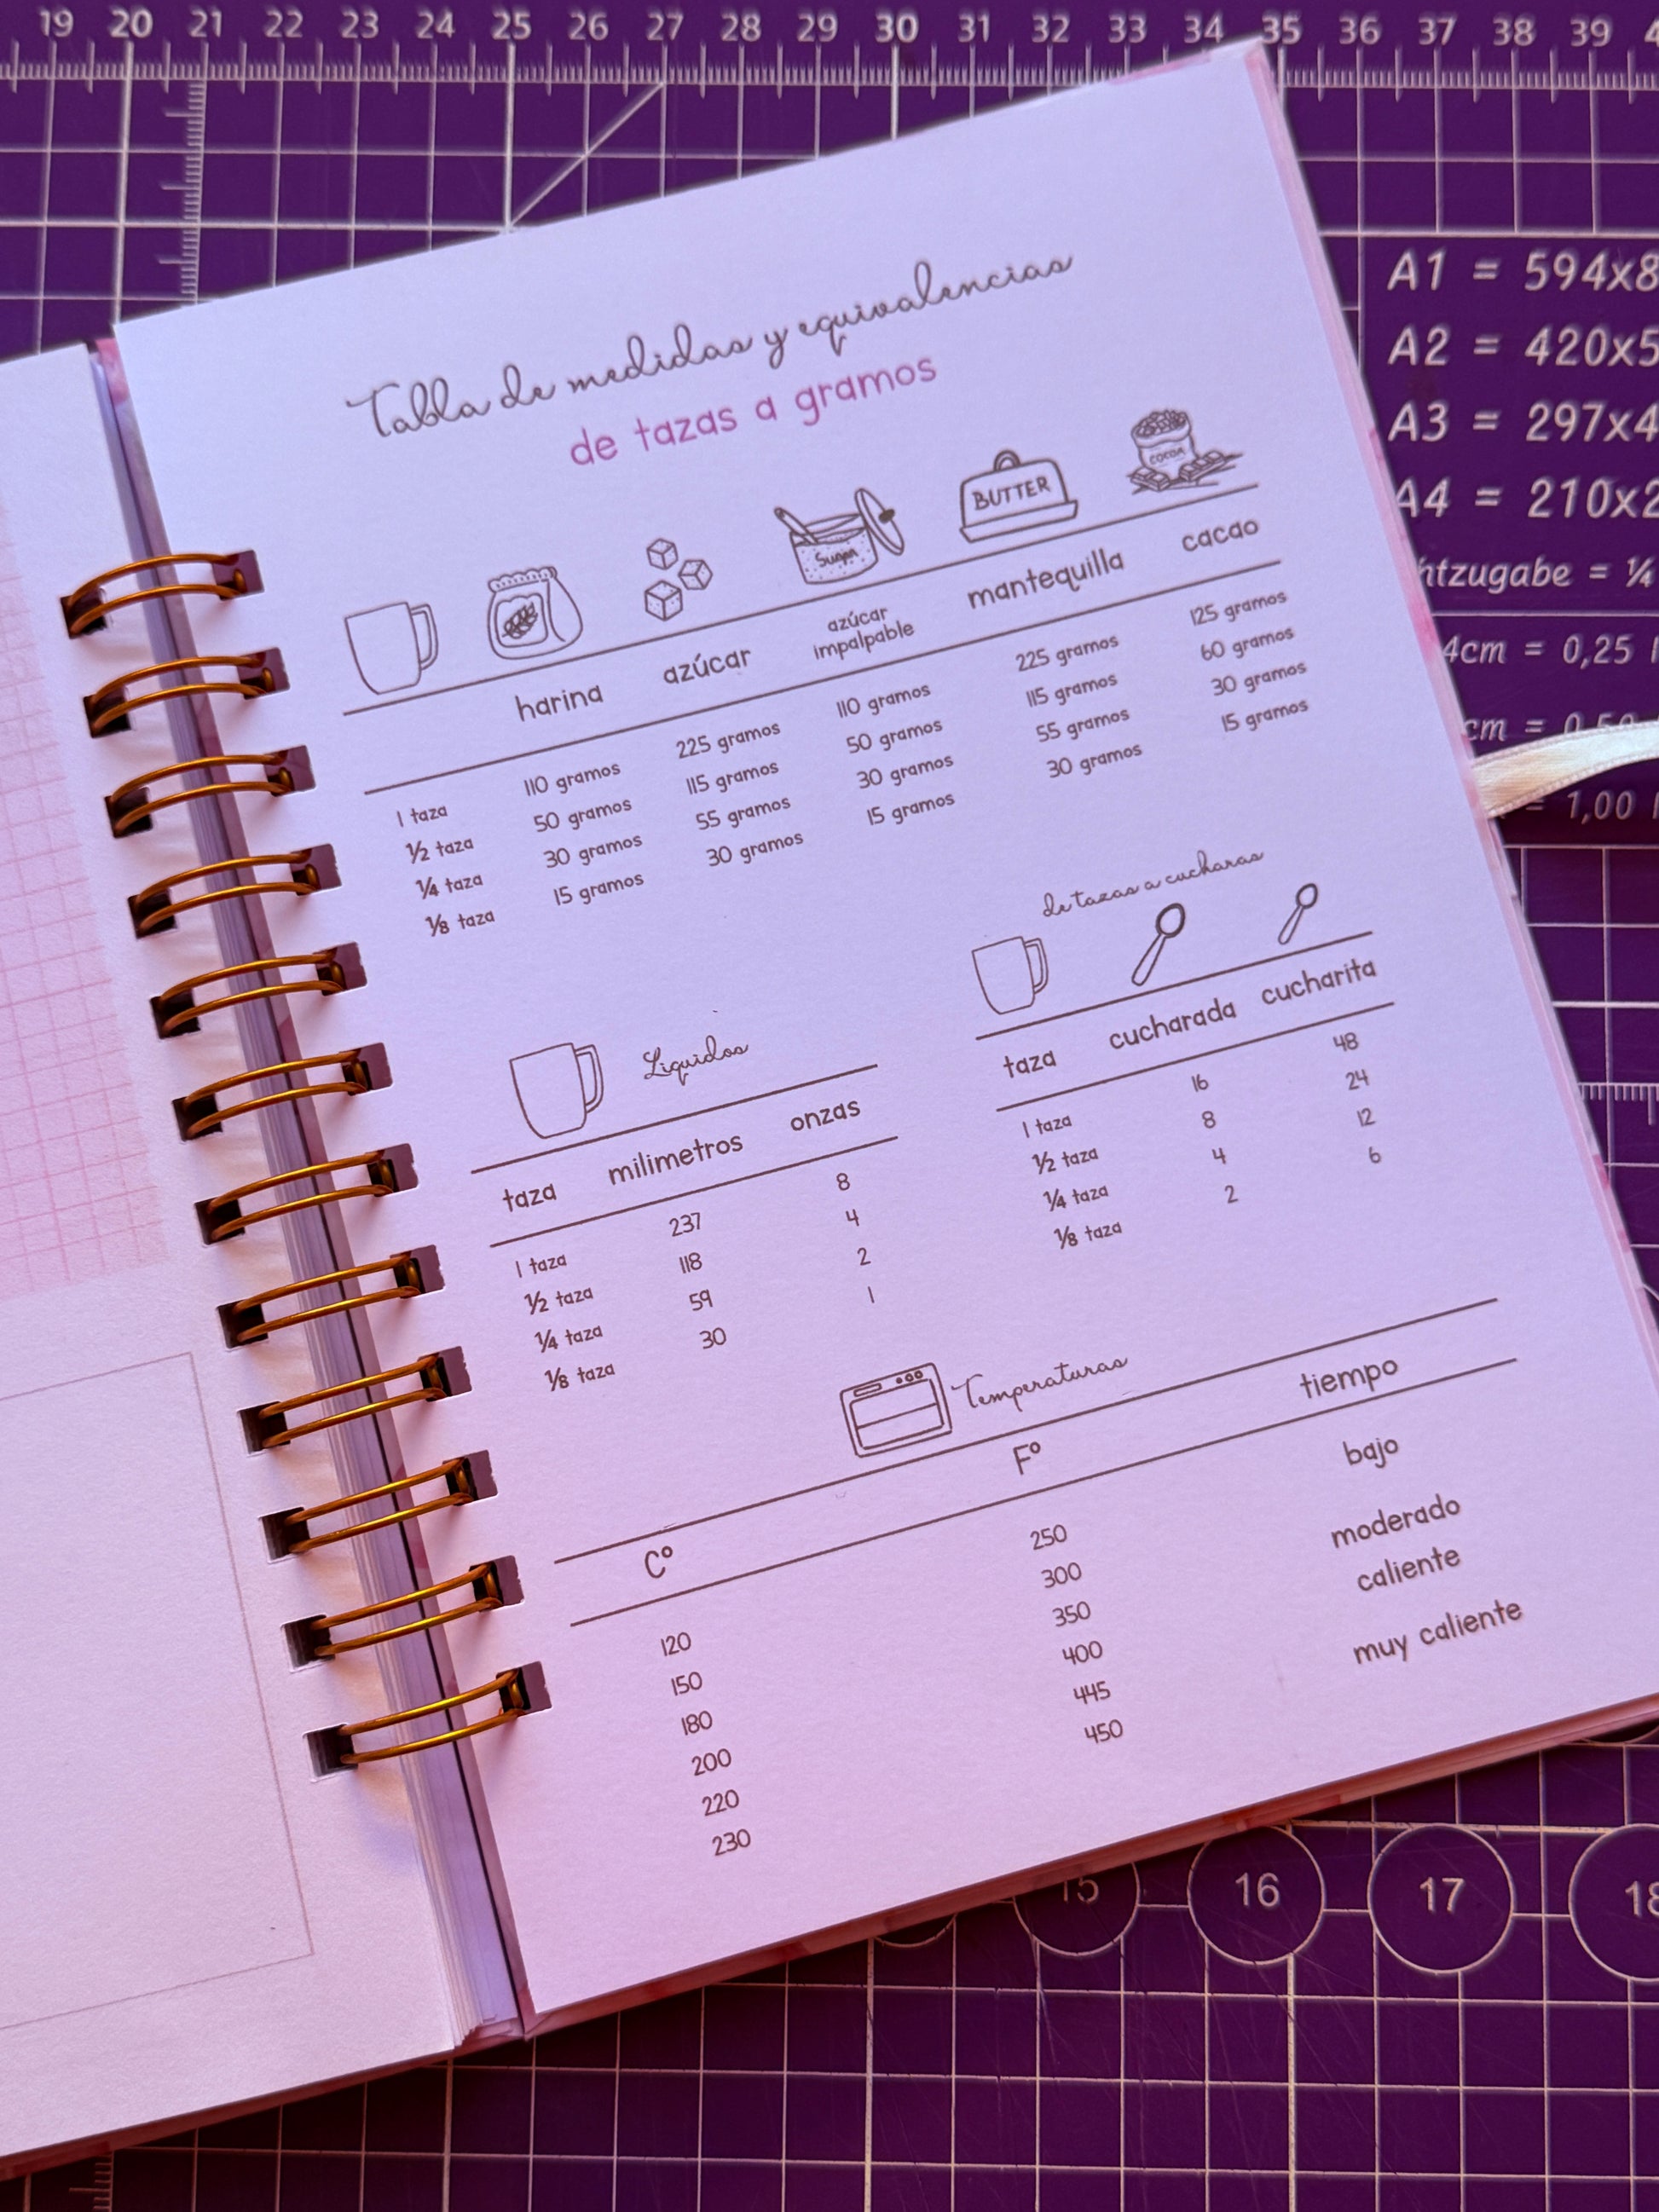 19 20 21 22 23 24 25 26 27 28 29 30 31 32 33 34 35 36 37 38 39
A1 = 594x8
A2 = 420x5
A3 = 297x4
A4 = 210x2
htzugabe = ¼
4cm = 0,25
cm = 0,50
= 1,00
Tabla de medidas y equivalencias
de tazas a gramos
Sugar
BUTTER
COCOA
harina azúcar azúcar impalpable mantequilla cacao
1 taza 110 gramos 225 gramos 110 gramos 225 gramos 125 gramos
½ taza 50 gramos 115 gramos 50 gramos 115 gramos 60 gramos
¼ taza 30 gramos 55 gramos 30 gramos 55 gramos 30 gramos
⅛ taza 15 gramos 30 gramos 15 gramos 30 gramos 15 gramos
de tazas a cucharas
taza cucharada cucharita
1 taza 16 48
½ taza 8 24
¼ taza 4 12
⅛ taza 2 6
Líquidos
taza milimetros onzas
1 taza 237 8
½ taza 118 4
¼ taza 59 2
⅛ taza 30 1
Temperaturas
C° F° tiempo
120 250 bajo
150 300
180 350 moderado
200 400 caliente
220 445
230 450 muy caliente
15 16 17 18